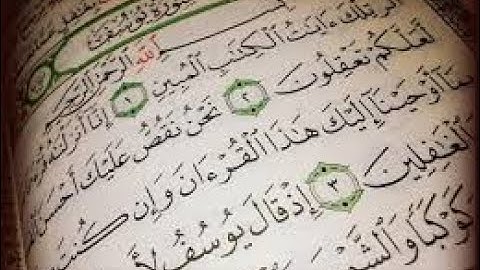 سُورَةُ يُوسُفَ
ٱللَّهِ ٱلرَّحْمَٰنِ ٱلرَّحِيمِ
الٓر تِلْكَ ءَايَٰتُ ٱلْكِتَٰبِ ٱلْمُبِينِ ١ إِنَّآ أَنزَلْنَٰهُ
لَّعَلَّكُمْ تَعْقِلُونَ ٢ نَحْنُ نَقُصُّ عَلَيْكَ أَحْسَنَ
بِمَآ أَوْحَيْنَآ إِلَيْكَ هَٰذَا ٱلْقُرْءَانَ وَإِن كُنتَ
ٱلْغَٰفِلِينَ ٣ إِذْ قَالَ يُوسُفُ
كَوْكَبًا وَٱلشَّمْسَ